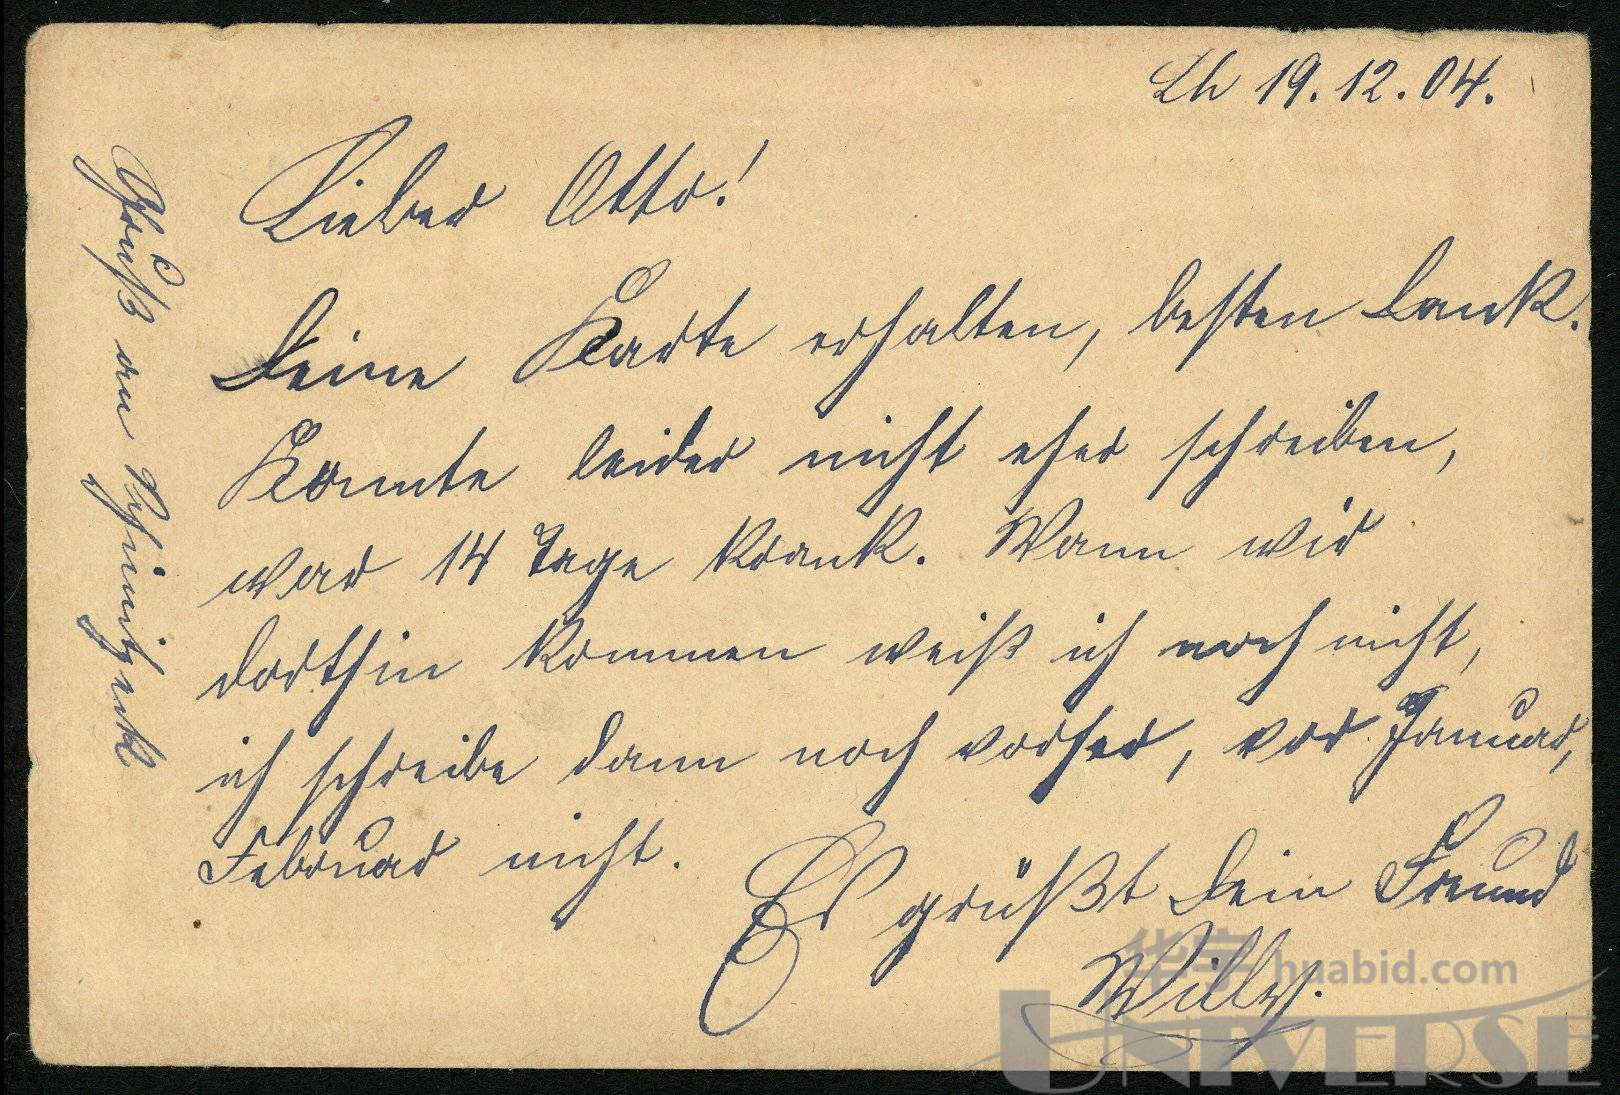 Lh 19.12.04.
Lieber Otto!
Deine Karte erhalten, besten Dank.
Konnte leider nicht eher schreiben,
war 14 Tage krank. Wann wir
dorthin kommen weiß ich noch nicht,
ich schreibe dann noch vorher, vor Januar,
Februar nicht.
Es grüßt Dein Freund
Willy.
Gruß an
华宇 huabid.com
UNIVERSE